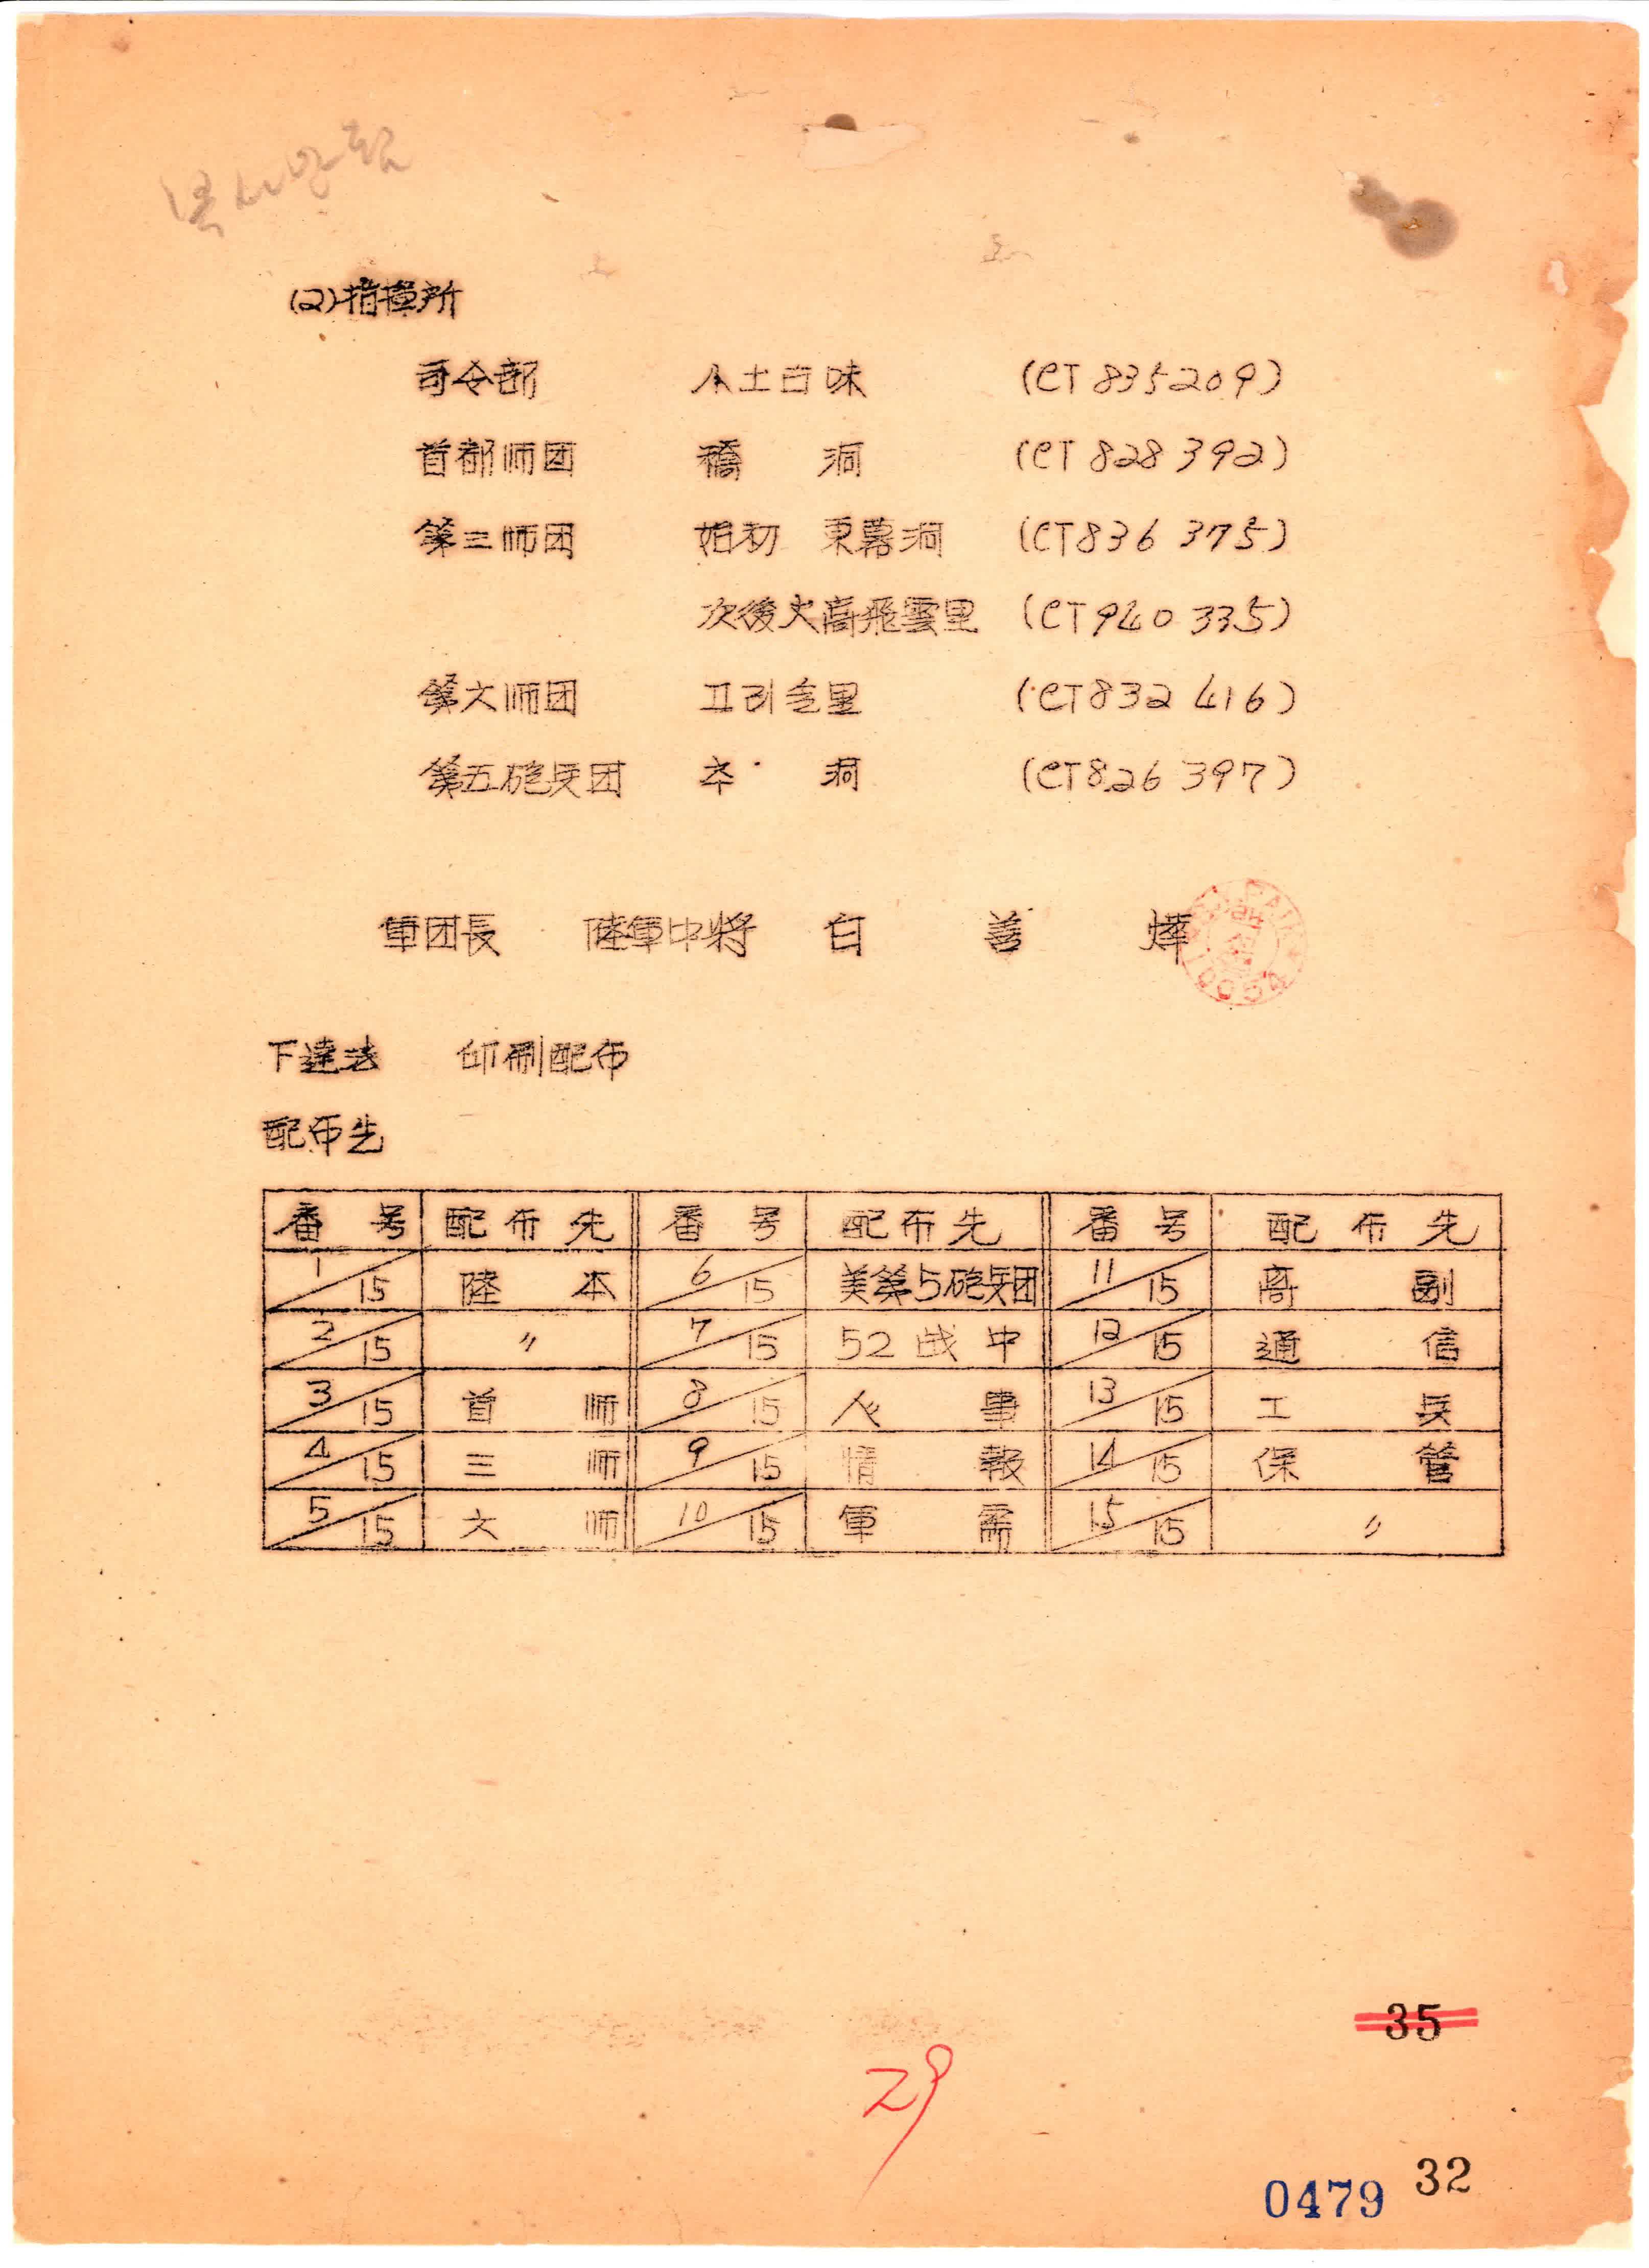 (2) 指揮所
司令部 小土古味 (CT 835209)
首都师団 橋 洞 (CT 828 392)
第三师団 始初 東幕洞 (CT836 375)
次後 史高飛雲里 (CT940 335)
第六师団 고리 里 (CT832 416)
第五砲兵団 本 洞 (CT826 397)
軍団長 陸軍中將 白 善 燁
下達法 印刷配布
配布先
番号 配布先 番号 配布先 番号 配布先
1/15 陸本 6/15 美第5砲兵団 11/15 高副
2/15 〃 7/15 52战中 12/15 通信
3/15 首师 8/15 人事 13/15 工兵
4/15 三师 9/15 情報 14/15 保管
5/15 六师 10/15 軍需 15/15 〃
35
29
0479 32